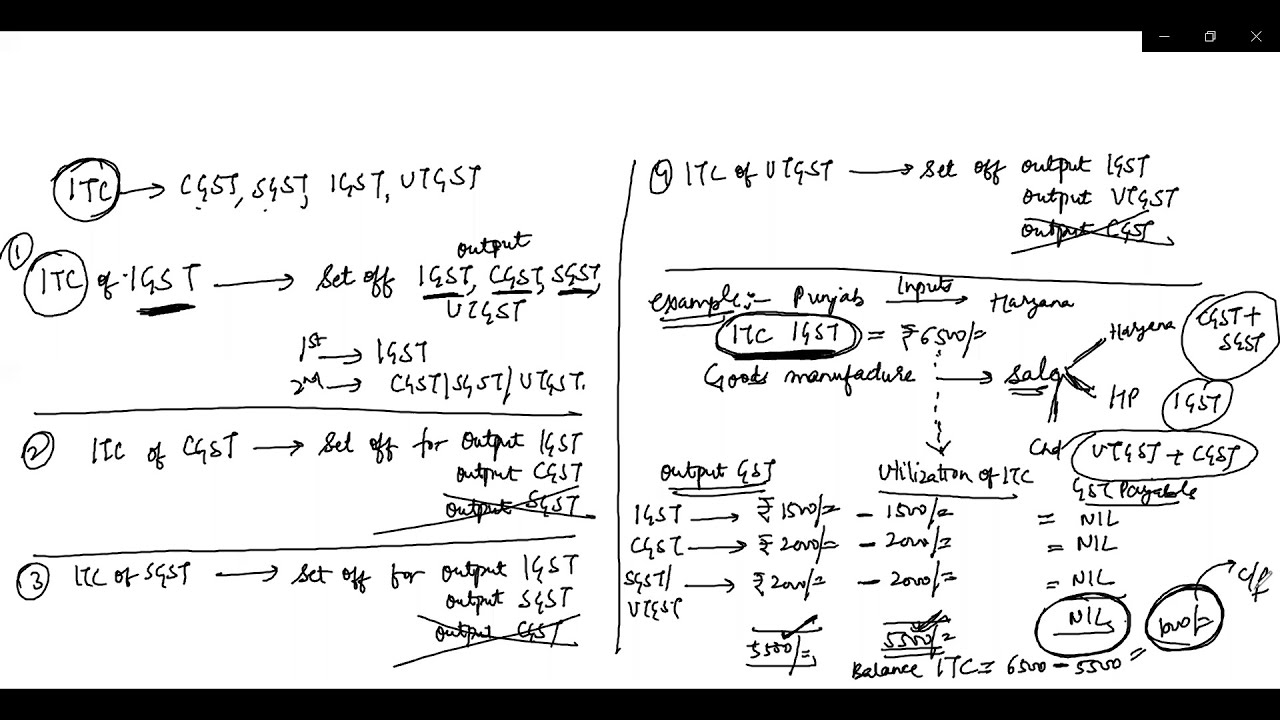 ITC → CGST, SGST, IGST, UTGST
① output
ITC of IGST → Set off IGST, CGST, SGST,
UTGST
1st → IGST
2nd → CGST/SGST/UTGST.
② ITC of CGST → Set off for output IGST
output CGST
output SGST
③ ITC of SGST → Set off for output IGST
output SGST
output CGST
④ ITC of UTGST → Set off output IGST
output UTGST
output CGST
Example:- Punjab Inputs → Haryana
ITC IGST = ₹6500/=
Goods manufacture → Sale
Haryana CGST +
SGST
HP IGST
Chd UTGST + CGST
Output GST Utilization of ITC GST Payable
IGST → ₹1500/= - 1500/= = NIL
CGST → ₹2000/= - 2000/= = NIL
SGST/ → ₹2000/= - 2000/= = NIL
UTGST
5500/= 5500/= NIL 1000/= → c/f
Balance ITC = 6500 - 5500 =